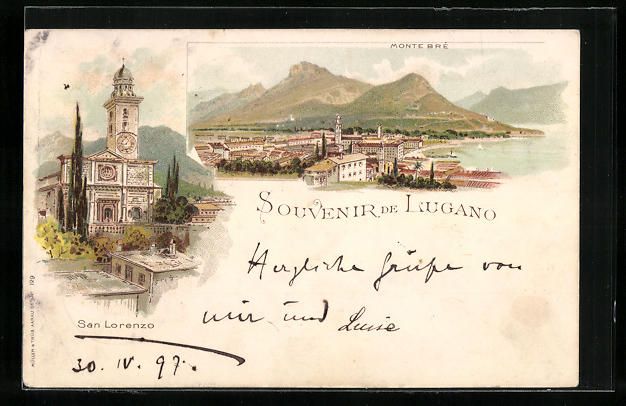 MONTE BRÈ
SOUVENIR DE LUGANO
Herzliche Grüße von
mir und Luise
San Lorenzo
30. IV. 97.
MÜLLER & TRÜB AARAU 129